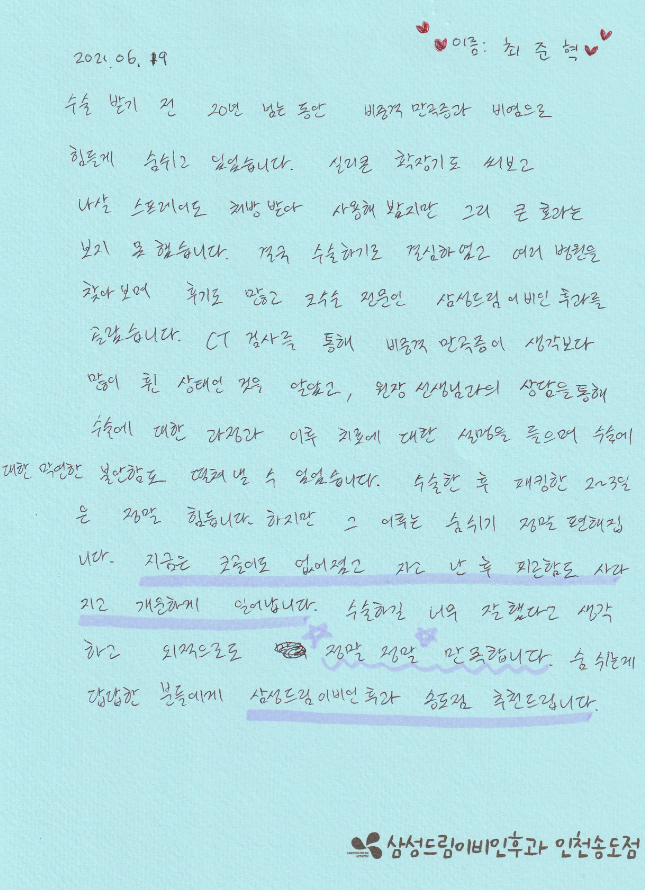 이름: 최준혁
2021.06.19
수술 받기 전 20년 넘는 동안 비중격 만곡증과 비염으로
힘들게 숨쉬고 있었습니다. 실리콘 확장기도 써보고
나살 스프레이도 처방 받아 사용해 봤지만 그리 큰 효과는
보지 못 했습니다. 결국 수술하기로 결심하였고 여러 병원을
찾아보며 후기도 많고 코수술 전문인 삼성드림이비인후과를
골랐습니다. CT 검사를 통해 비중격 만곡증이 생각보다
많이 휜 상태인 것을 알았고, 원장 선생님과의 상담을 통해
수술에 대한 과정과 이후 치료에 대한 설명을 들으며 수술에
대한 막연한 불안함도 떨쳐낼 수 있었습니다. 수술한 후 패킹한 2~3일
은 정말 힘듭니다. 하지만 그 이후는 숨쉬기 정말 편해집
니다. 지금은 코골이도 없어졌고 자고 난 후 피곤함도 사라
지고 개운하게 일어납니다. 수술하길 너무 잘했다고 생각
하고 외적으로도 정말 정말 만족합니다. 숨쉬는게
답답한 분들에게 삼성드림이비인후과 송도점 추천드립니다.
삼성드림이비인후과 인천송도점